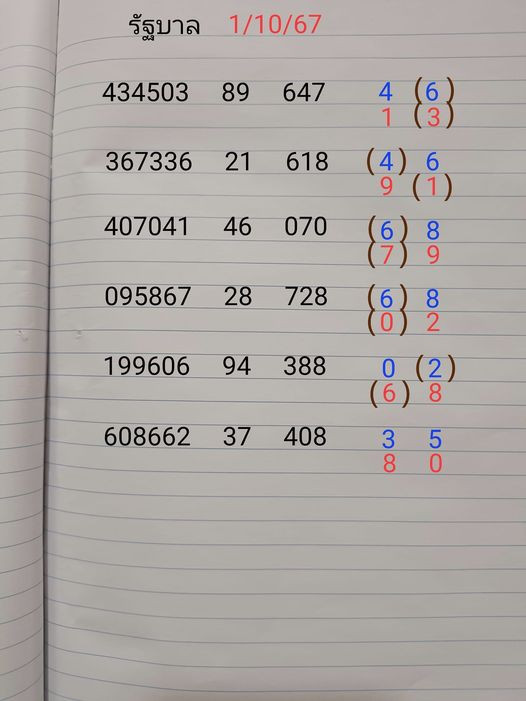 รัฐบาล 1/10/67
434503 89 647 4 (6)
1 (3)
367336 21 618 (4) 6
9 (1)
407041 46 070 (6) 8
(7) 9
095867 28 728 (6) 8
(0) 2
199606 94 388 0 (2)
(6) 8
608662 37 408 3 5
8 0